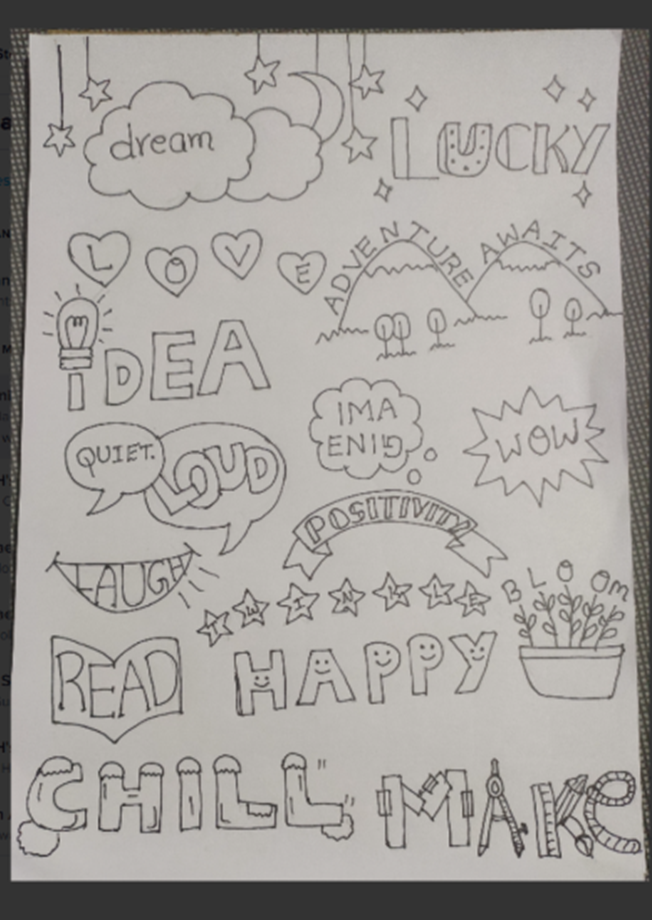 dream
LUCKY
LOVE
ADVENTURE AWAITS
iDEA
IMA
ENIG
WOW
QUIET.
LOUD
POSITIVITY
LAUGH
TWINKLE
BLOOm
READ
HAPPY
CHILL
MAKe